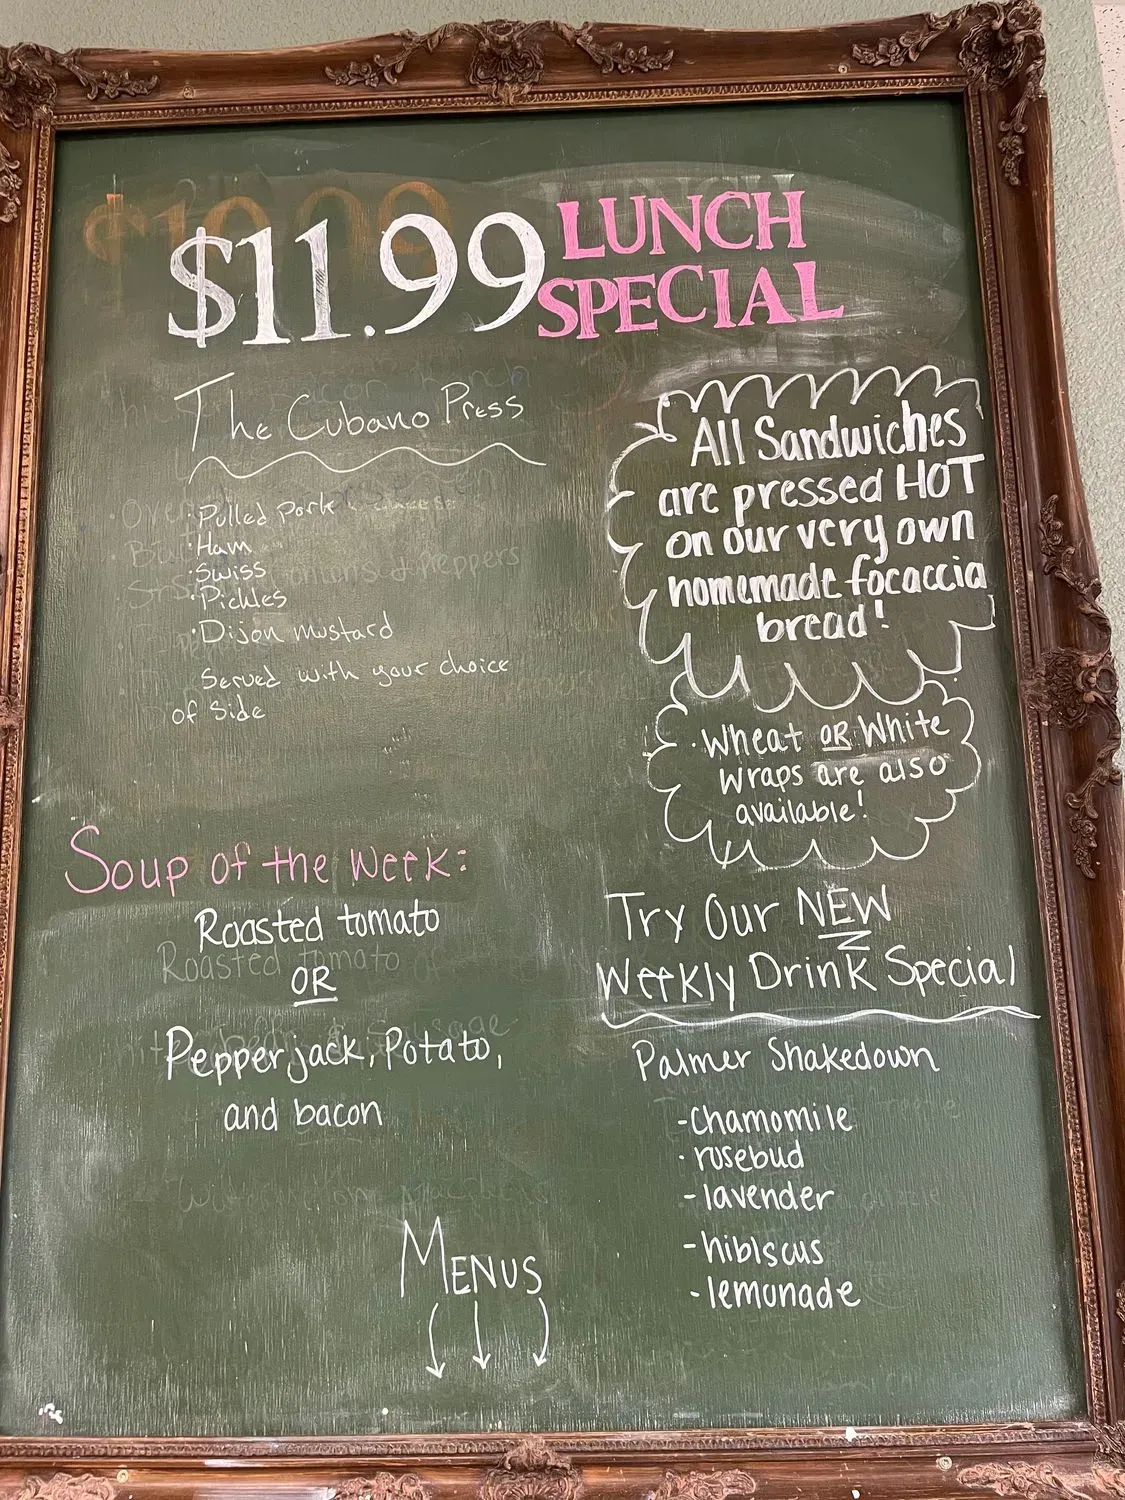 $11.99 LUNCH
SPECIAL
The Cubano Press
· Pulled Pork
· Ham
· Swiss
· Pickles
· Dijon mustard
Served with your choice
of Side
All Sandwiches
are pressed HOT
on our very own
homemade focaccia
bread!
· Wheat OR White
Wraps are also
available!
Soup of the Week:
Roasted tomato
Roasted tomato
OR
Pepperjack, Potato,
and bacon
Try Our NEW
Weekly Drink Special
Palmer Shakedown
- Chamomile
· rosebud
- lavender
- hibiscus
- lemonade
MENUS